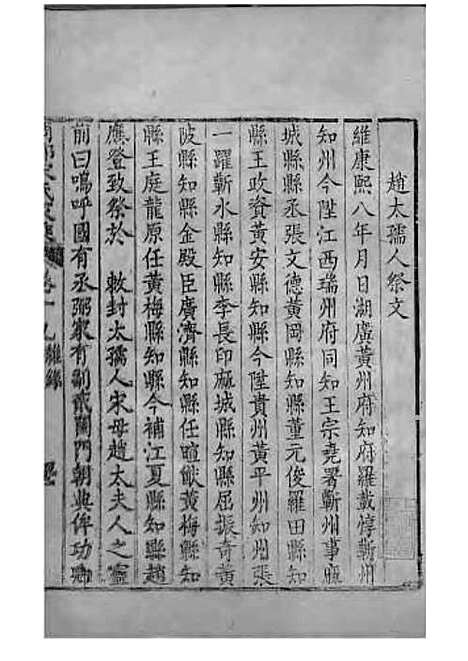 趙太孺人祭文
維康熙八年月日湖廣黃州府知府羅載惇蘄州
知州今陞江西瑞州府同知王宗堯署蘄州事麻
城縣縣丞張文德黃岡縣知縣董元俊羅田縣知
縣王政資黃安縣知縣今陞貴州黃平州知州張
一躍蘄水縣知縣李長印麻城縣知縣屈振奇黃
陂縣知縣金殿臣廣濟縣知縣任暄猷黃梅縣知
縣王庭龍原任黃梅縣知縣今補江夏縣知縣趙
應登致祭於 敕封太孺人宋母趙太夫人之靈
前曰嗚呼國有丞弼家有副貳閫門朝典俾功卿
卷十九 雜錄